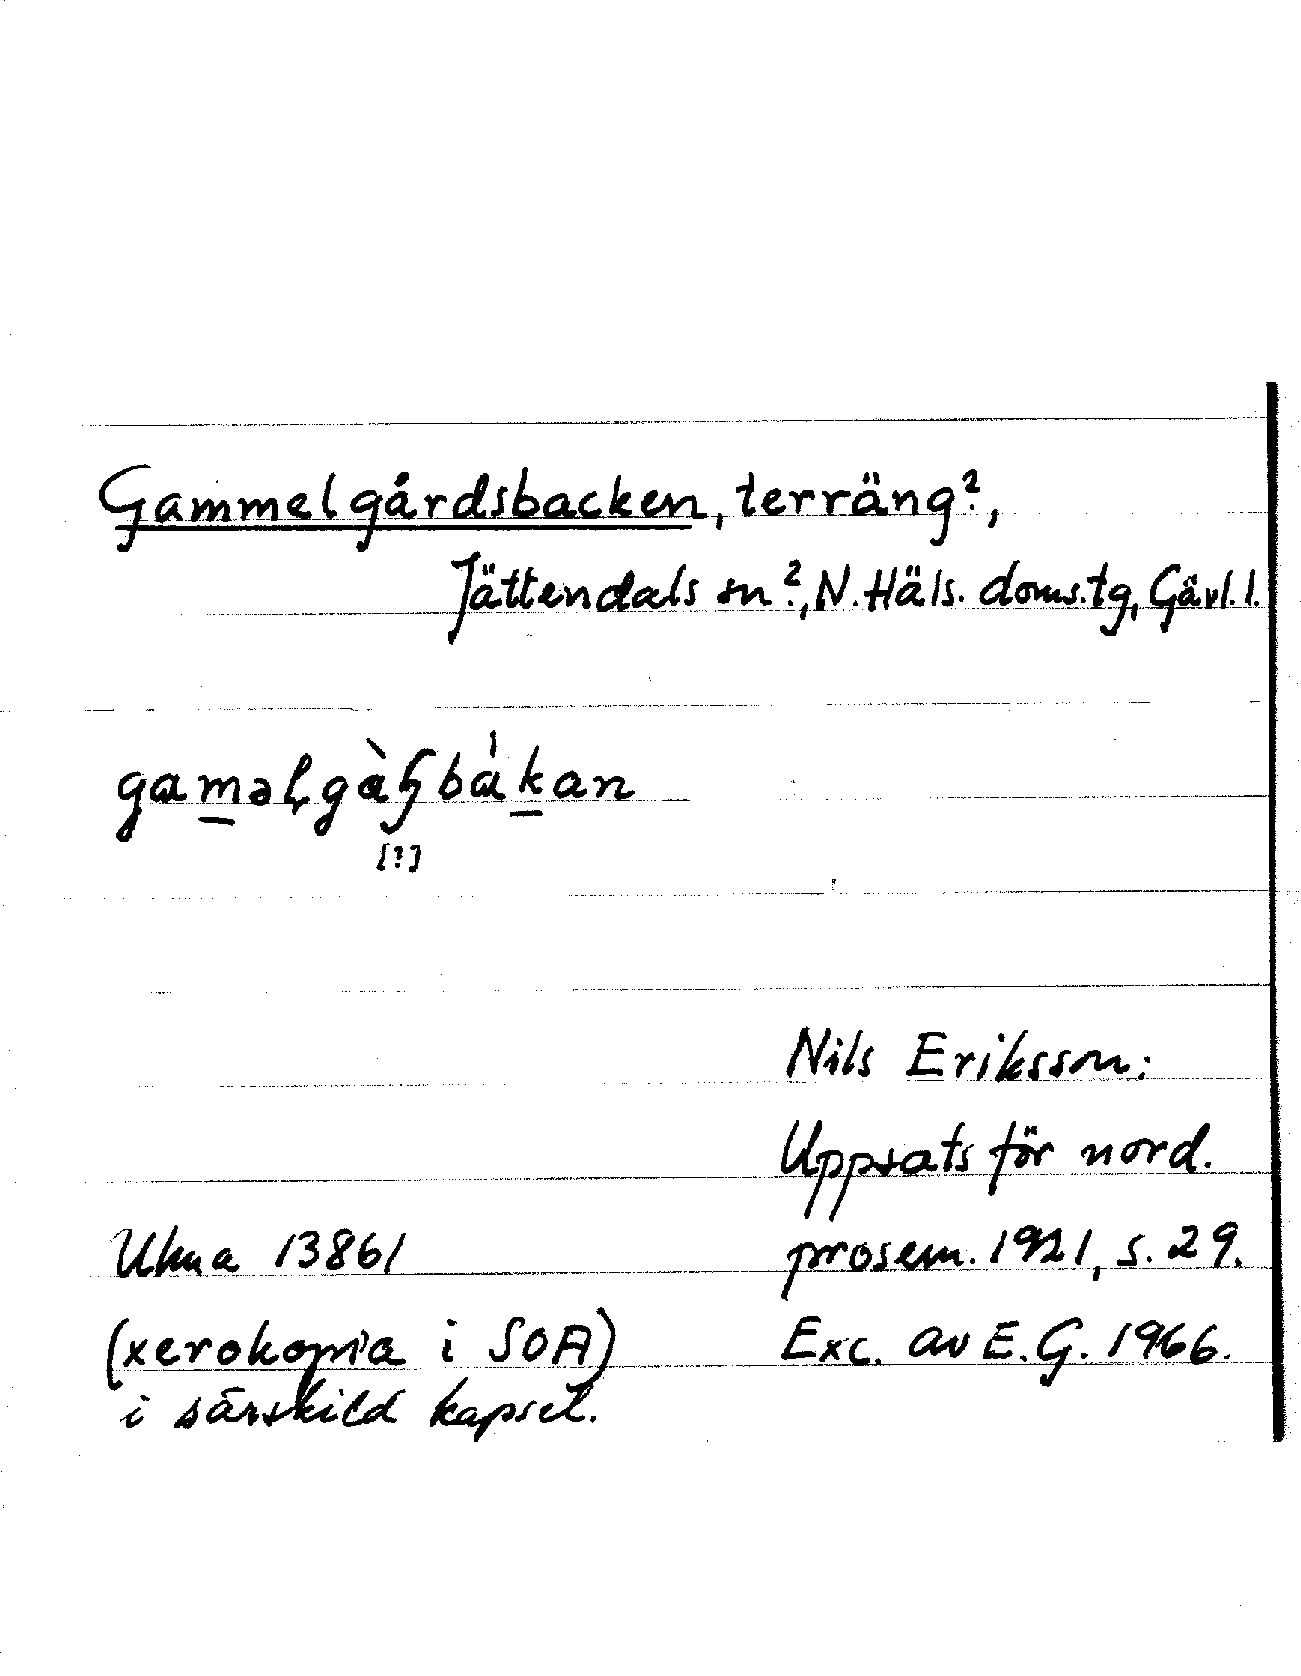 Gammelgårdsbacken, terräng?,
Jättendals sn?, N. Häls. doms.tg, Gävl. l.
[?]
Nils Eriksson:
Uppsats för nord.
Ukna 13861 prosem. 1921, s. 29.
(xerokopia i SOA) Exc. av E.G. 1966.
i särskild kapsel.